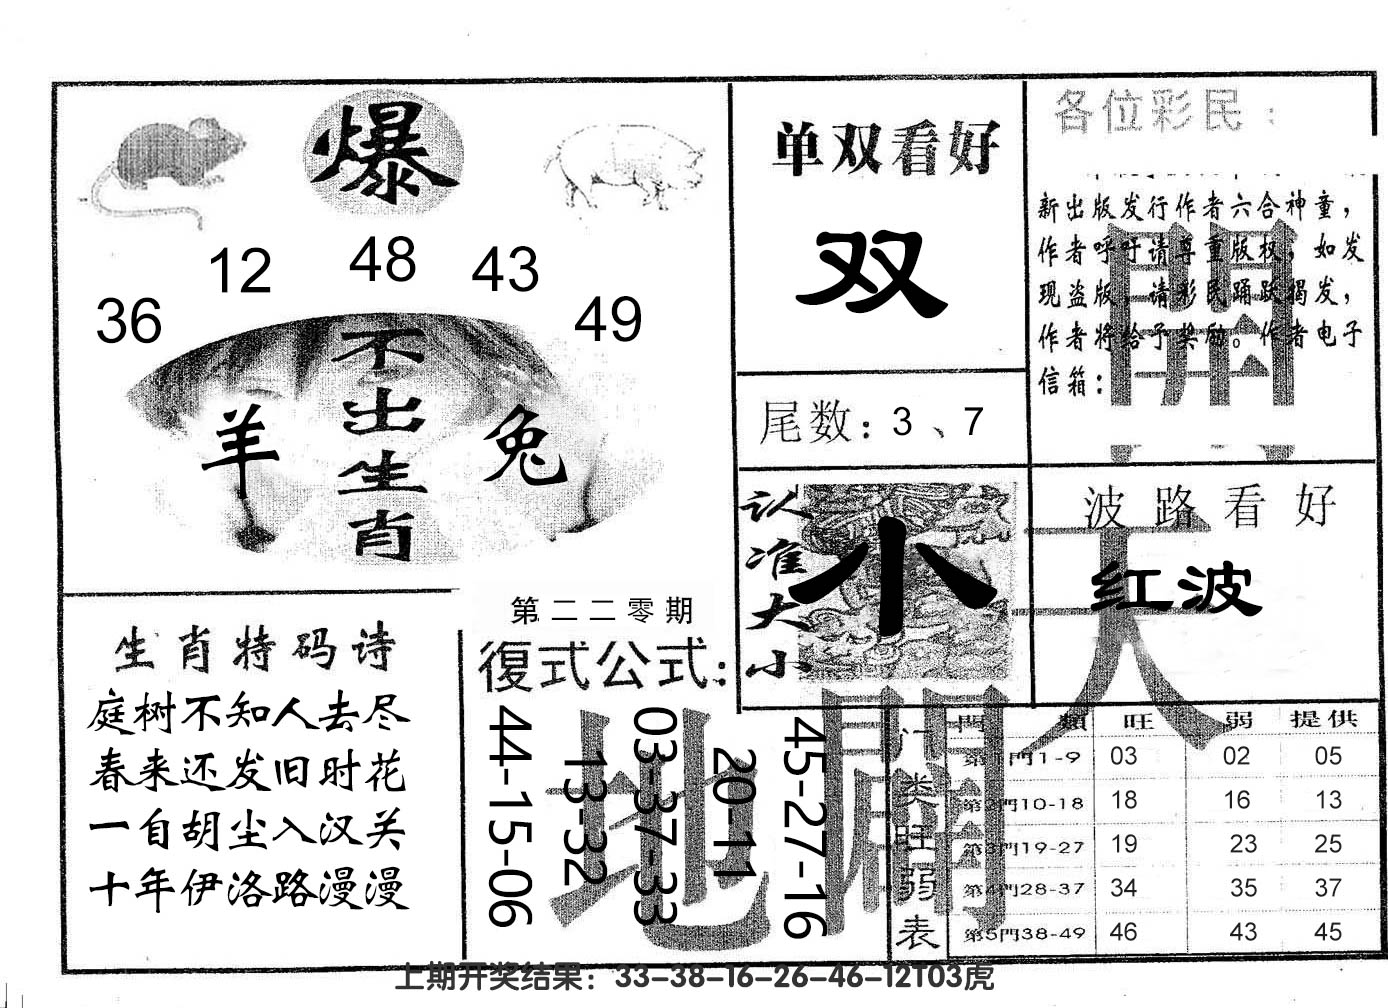 爆
36
12
48
43
49
不出生肖
羊
兔
单双看好
双
尾数：3、7
认准大小
小
各位彩民：
新出版发行作者六合神童，
作者呼吁请尊重版权，如发
现盗版，请彩民踊跃揭发，
作者将给予奖励。作者电子
信箱：
波路看好
红波
生肖特码诗
庭树不知人去尽
春来还发旧时花
一自胡尘入汉关
十年伊洛路漫漫
第二二零期
復式公式：
44-15-06
13-32
03-37-33
20-11
45-27-16
天
開
地
闢
门类旺弱表
門 類 旺 弱 提供
第1門1-9 03 02 05
第2門10-18 18 16 13
第3門19-27 19 23 25
第4門28-37 34 35 37
第5門38-49 46 43 45
上期开奖结果：33-38-16-26-46-12T03虎